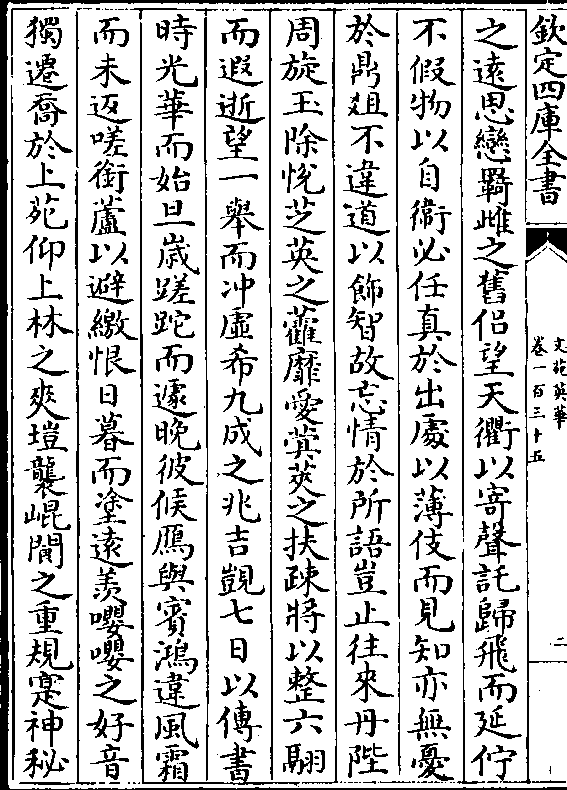 欽定四庫全書
文苑英華
卷一百三十五
二
之遠思戀羇雌之舊侣望天衢以寄聲託歸飛而延佇
不假物以自衛必任真於出處以薄伎而見知亦無憂
於鼎爼不違道以飾智故忘情於所語豈止往來丹陛
周旋玉除悅芝英之藿靡愛蓂莢之扶疎將以整六翮
而遐逝望一舉而冲虛希九成之兆吉覬七日以傳書
時光華而始旦歲蹉跎而遽晚彼候鴈與賓鴻違風霜
而未返嗟銜蘆以避繳恨日暮而塗遠羨嚶嚶之好音
獨遷喬於上苑仰上林之爽塏襲崐閬之重規寔神秘